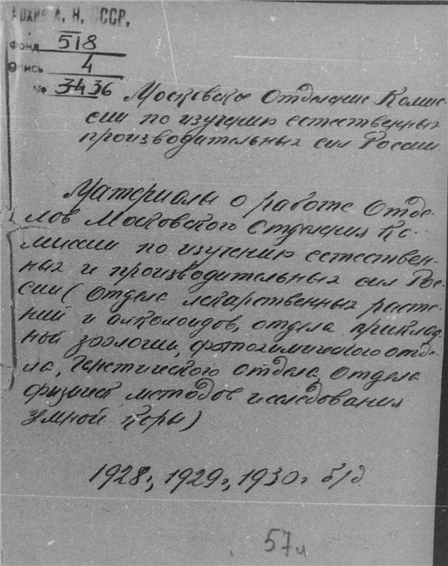 АРХИВ А. Н. СССР.
Фонд 518
Опись 4
№ 34 36
Московское Отделение Комис-
сии по изучению естественных
производительных сил России.
Материалы о работе Отде-
лов Московского Отделения Ко-
миссии по изучению естествен-
ных и производительных сил Рос-
сии (Отдела лекарственных расте-
ний и алкалоидов, отдела приклад-
ной зоологии, фитохимического отде-
ла, Генетического отдела, Отдела
физичес методов исследования
земной коры)
1928г., 1929г., 1930г. б/д
57л